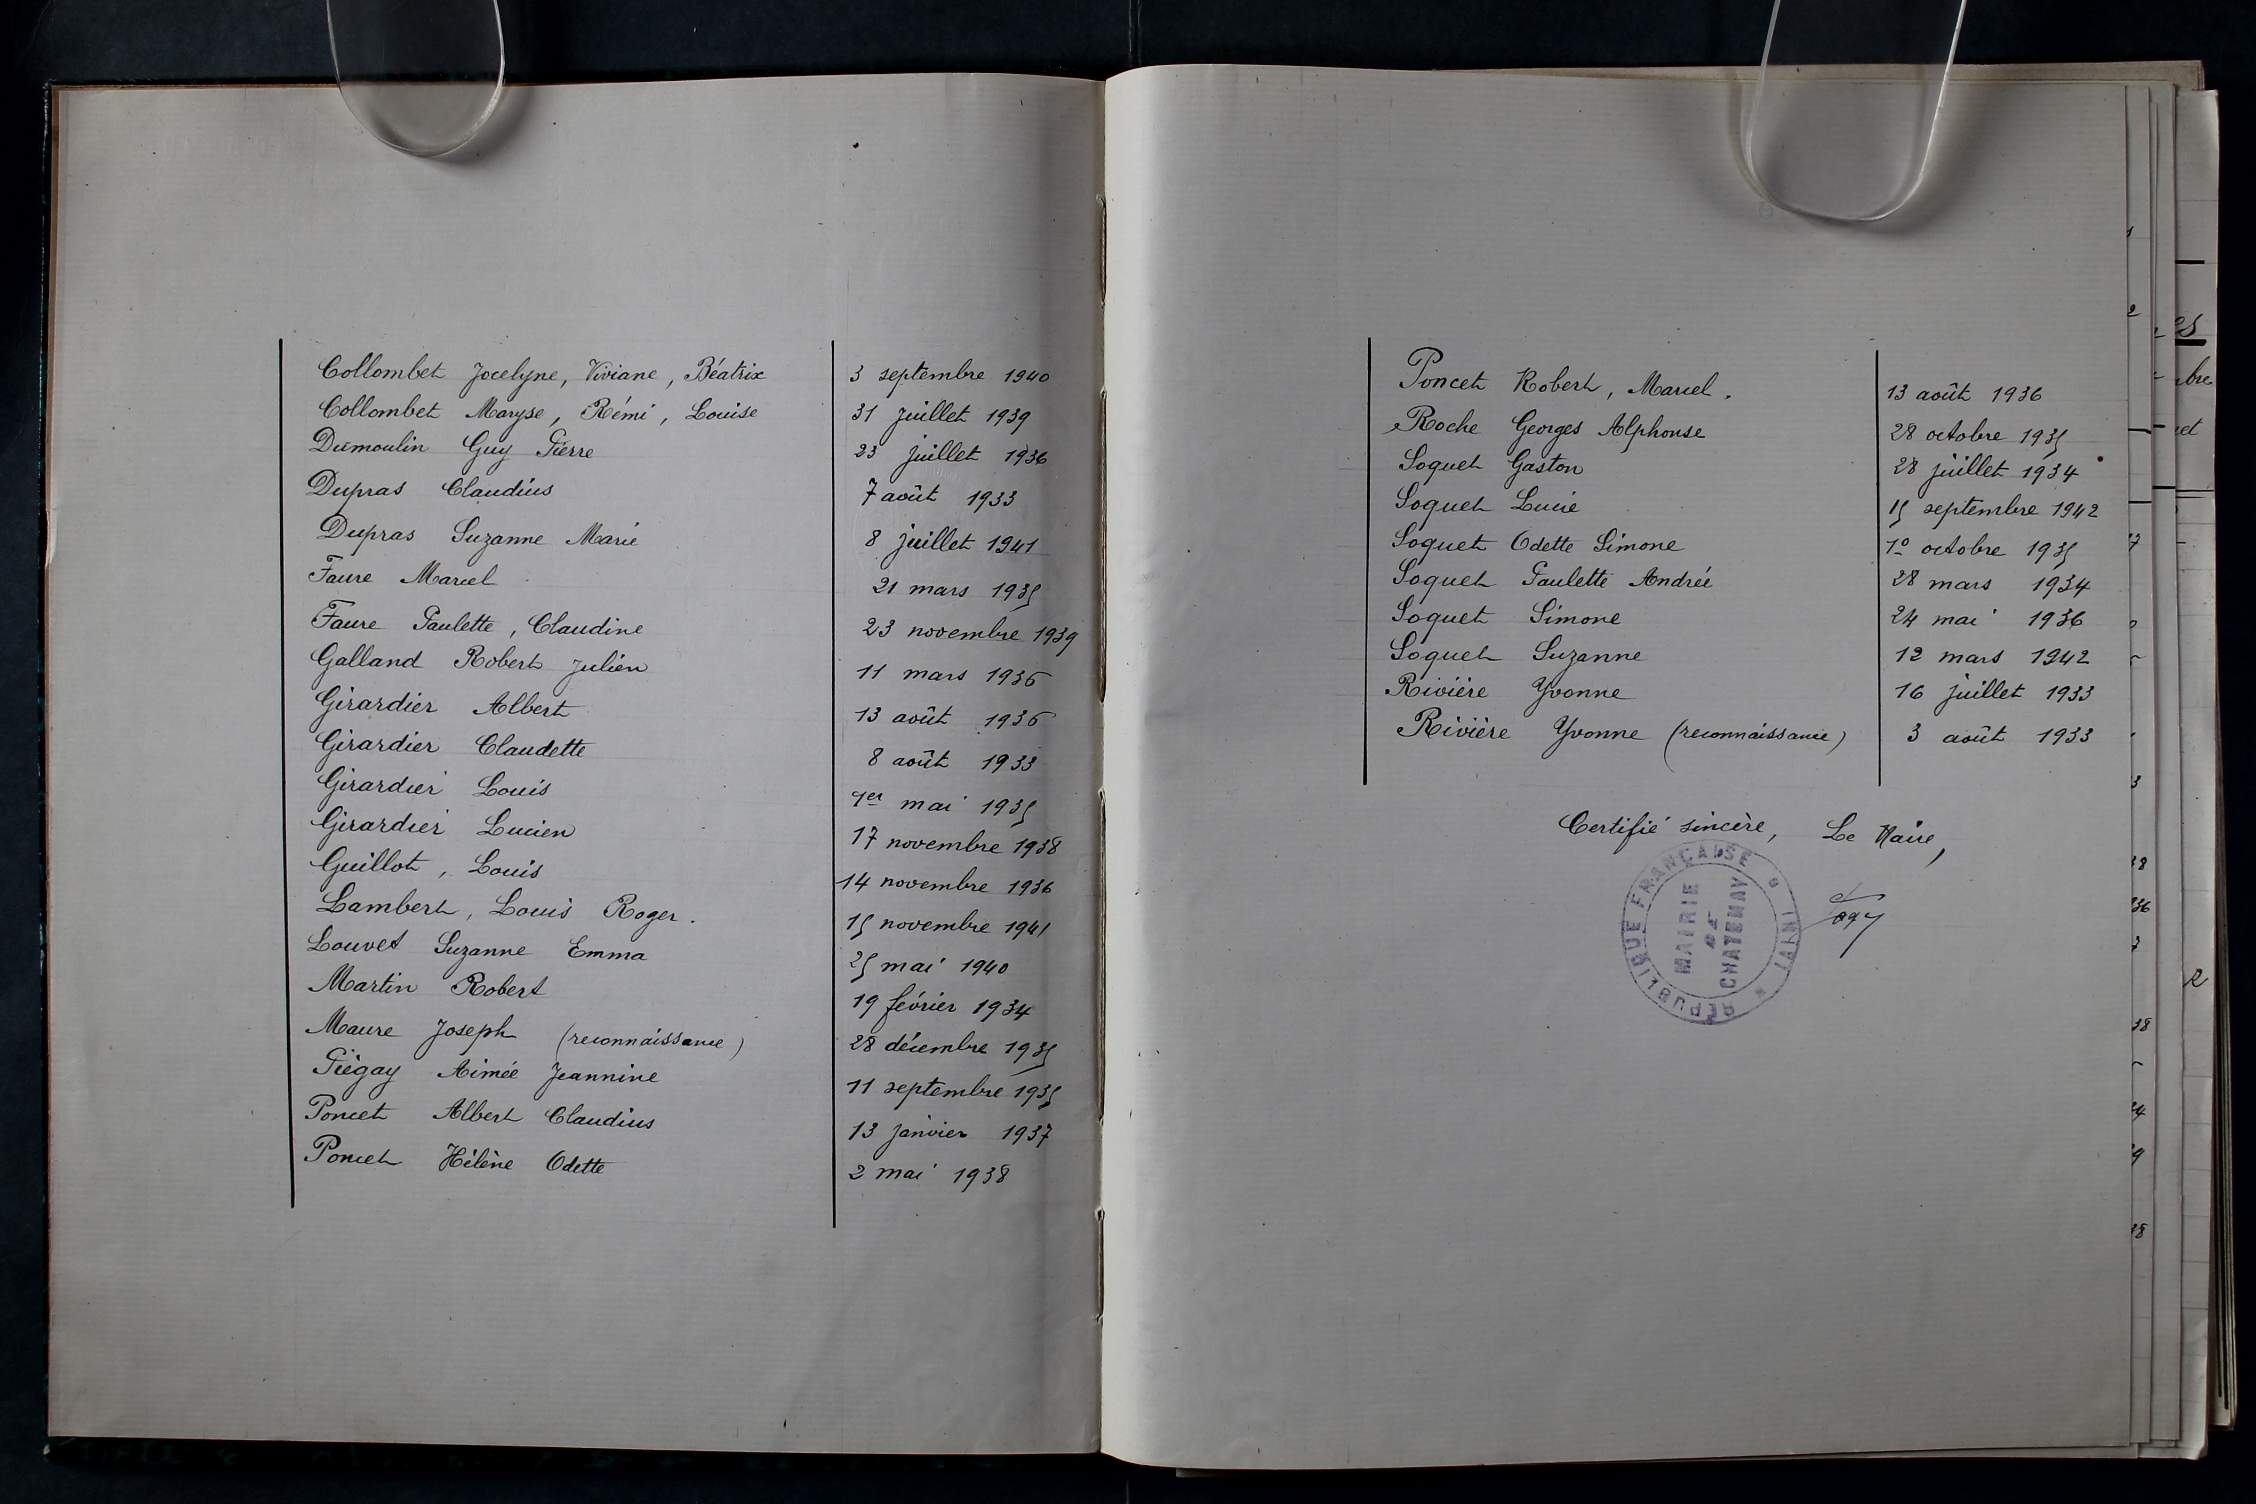 Collombet Jocelyne, Viviane, Béatrix 3 septembre 1940
Collombet Maryse, Rémi, Louise 31 juillet 1939
Dumoulin Guy Pierre 23 juillet 1936
Dupras Claudius 7 août 1933
Dupras Suzanne Marie 8 juillet 1941
Faure Marcel 21 mars 1935
Faure Paulette, Claudine 23 novembre 1939
Galland Robert Julien 11 mars 1936
Girardier Albert 13 août 1936
Girardier Claudette 8 août 1933
Girardier Louis 1er mai 1935
Girardier Lucien 17 novembre 1938
Guillot, Louis 14 novembre 1936
Lambert, Louis Roger. 15 novembre 1941
Louvet Suzanne Emma 25 mai 1940
Martin Robert 19 février 1934
Maure Joseph (reconnaissance) 28 décembre 1935
Piégay Aimée Jeannine 11 septembre 1935
Poncet Albert Claudius 13 janvier 1937
Poncet Hélène Odette 2 mai 1938
Poncet Robert, Marcel. 13 août 1936
Roche Georges Alphonse 28 octobre 1935
Soquet Gaston 28 juillet 1934
Soquet Lucie 15 septembre 1942
Soquet Odette Simone 1o octobre 1935
Soquet Paulette Andrée 28 mars 1934
Soquet Simone 24 mai 1936
Soquet Suzanne 12 mars 1942
Rivière Yvonne 16 juillet 1933
Rivière Yvonne (reconnaissance) 3 août 1933
Certifié sincère, Le Maire,
RÉPUBLIQUE FRANÇAISE
MAIRIE
DE
CHATENAY